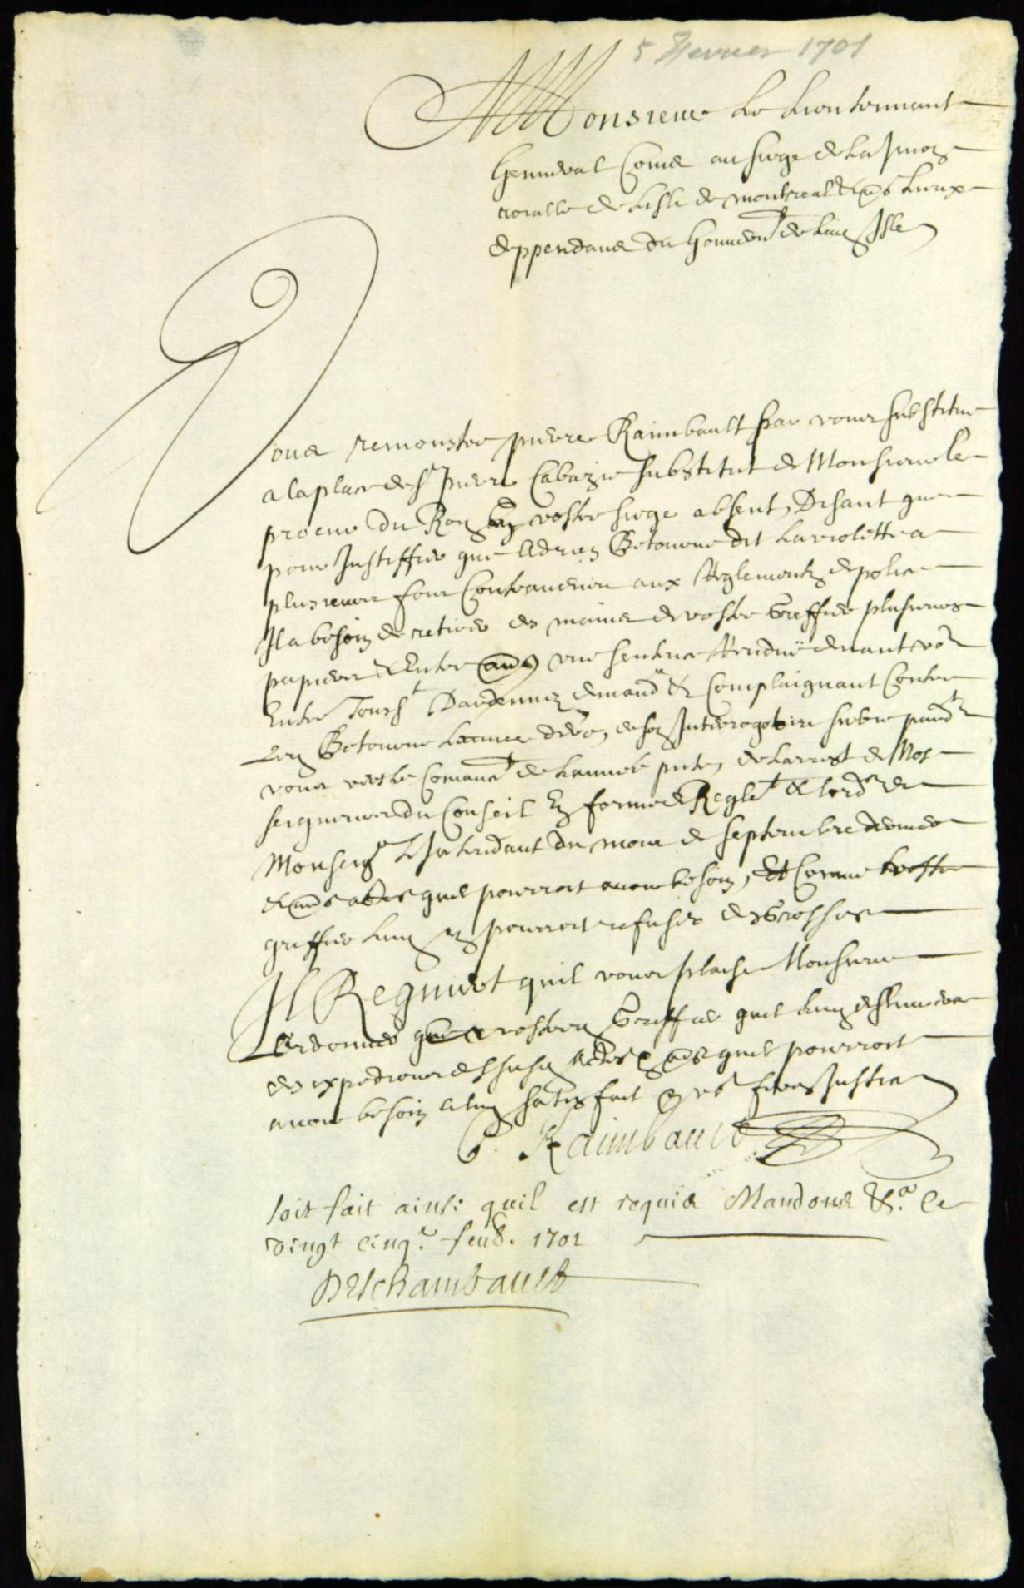 5 Fevrier 1701
A Monsieur Le Lieutennant
Genneral Comis au siege de la Juris
roialle de Lisle de montreal et lieux
deppendans du Gouvernt de lad Isle
Vous remonstre pierre Raimbault par vous substitue
a la place de sr pierre Cabazie substitut de Monsieur le
procur du Roy en vostre siege absent, Disant que
pour Justiffier que Adrien Betourne dit La violette a
plusieurs fois Contrevenu aux Reglements de police
Il a besoin de retirer des mains de vostre Greffier plusieurs
papiers et Entre autres une sentence Rendue devant vous
Entre Tousst Dardenne demandr et Complaignant Contre
Led Betourne de son Interrogatoire subie pardt
vous vers le Comanct de Lannee pnte, de Larrest de Nos
seigneurs du Conseil En forme de Reglet et lordce de
Monseigr L Intendant du mois de septembre dernier
et aues actes quil pourroit avoir besoin, Et Comme vostre
greffier luy en pourroit refuser des Grosses
Il Requiert quil vous plaise Monsieur
ordonner que vostre Greffier quil luy deslivrera
des expeditions desd actes et aues quil pourroit
avoir besoin a luy satisfait Et vs ferez Justice
P. Raimbault
soit fait ainsi quil est requis Mandons &a. Ce
vingt cinqe. feur. 1701
Deschambault